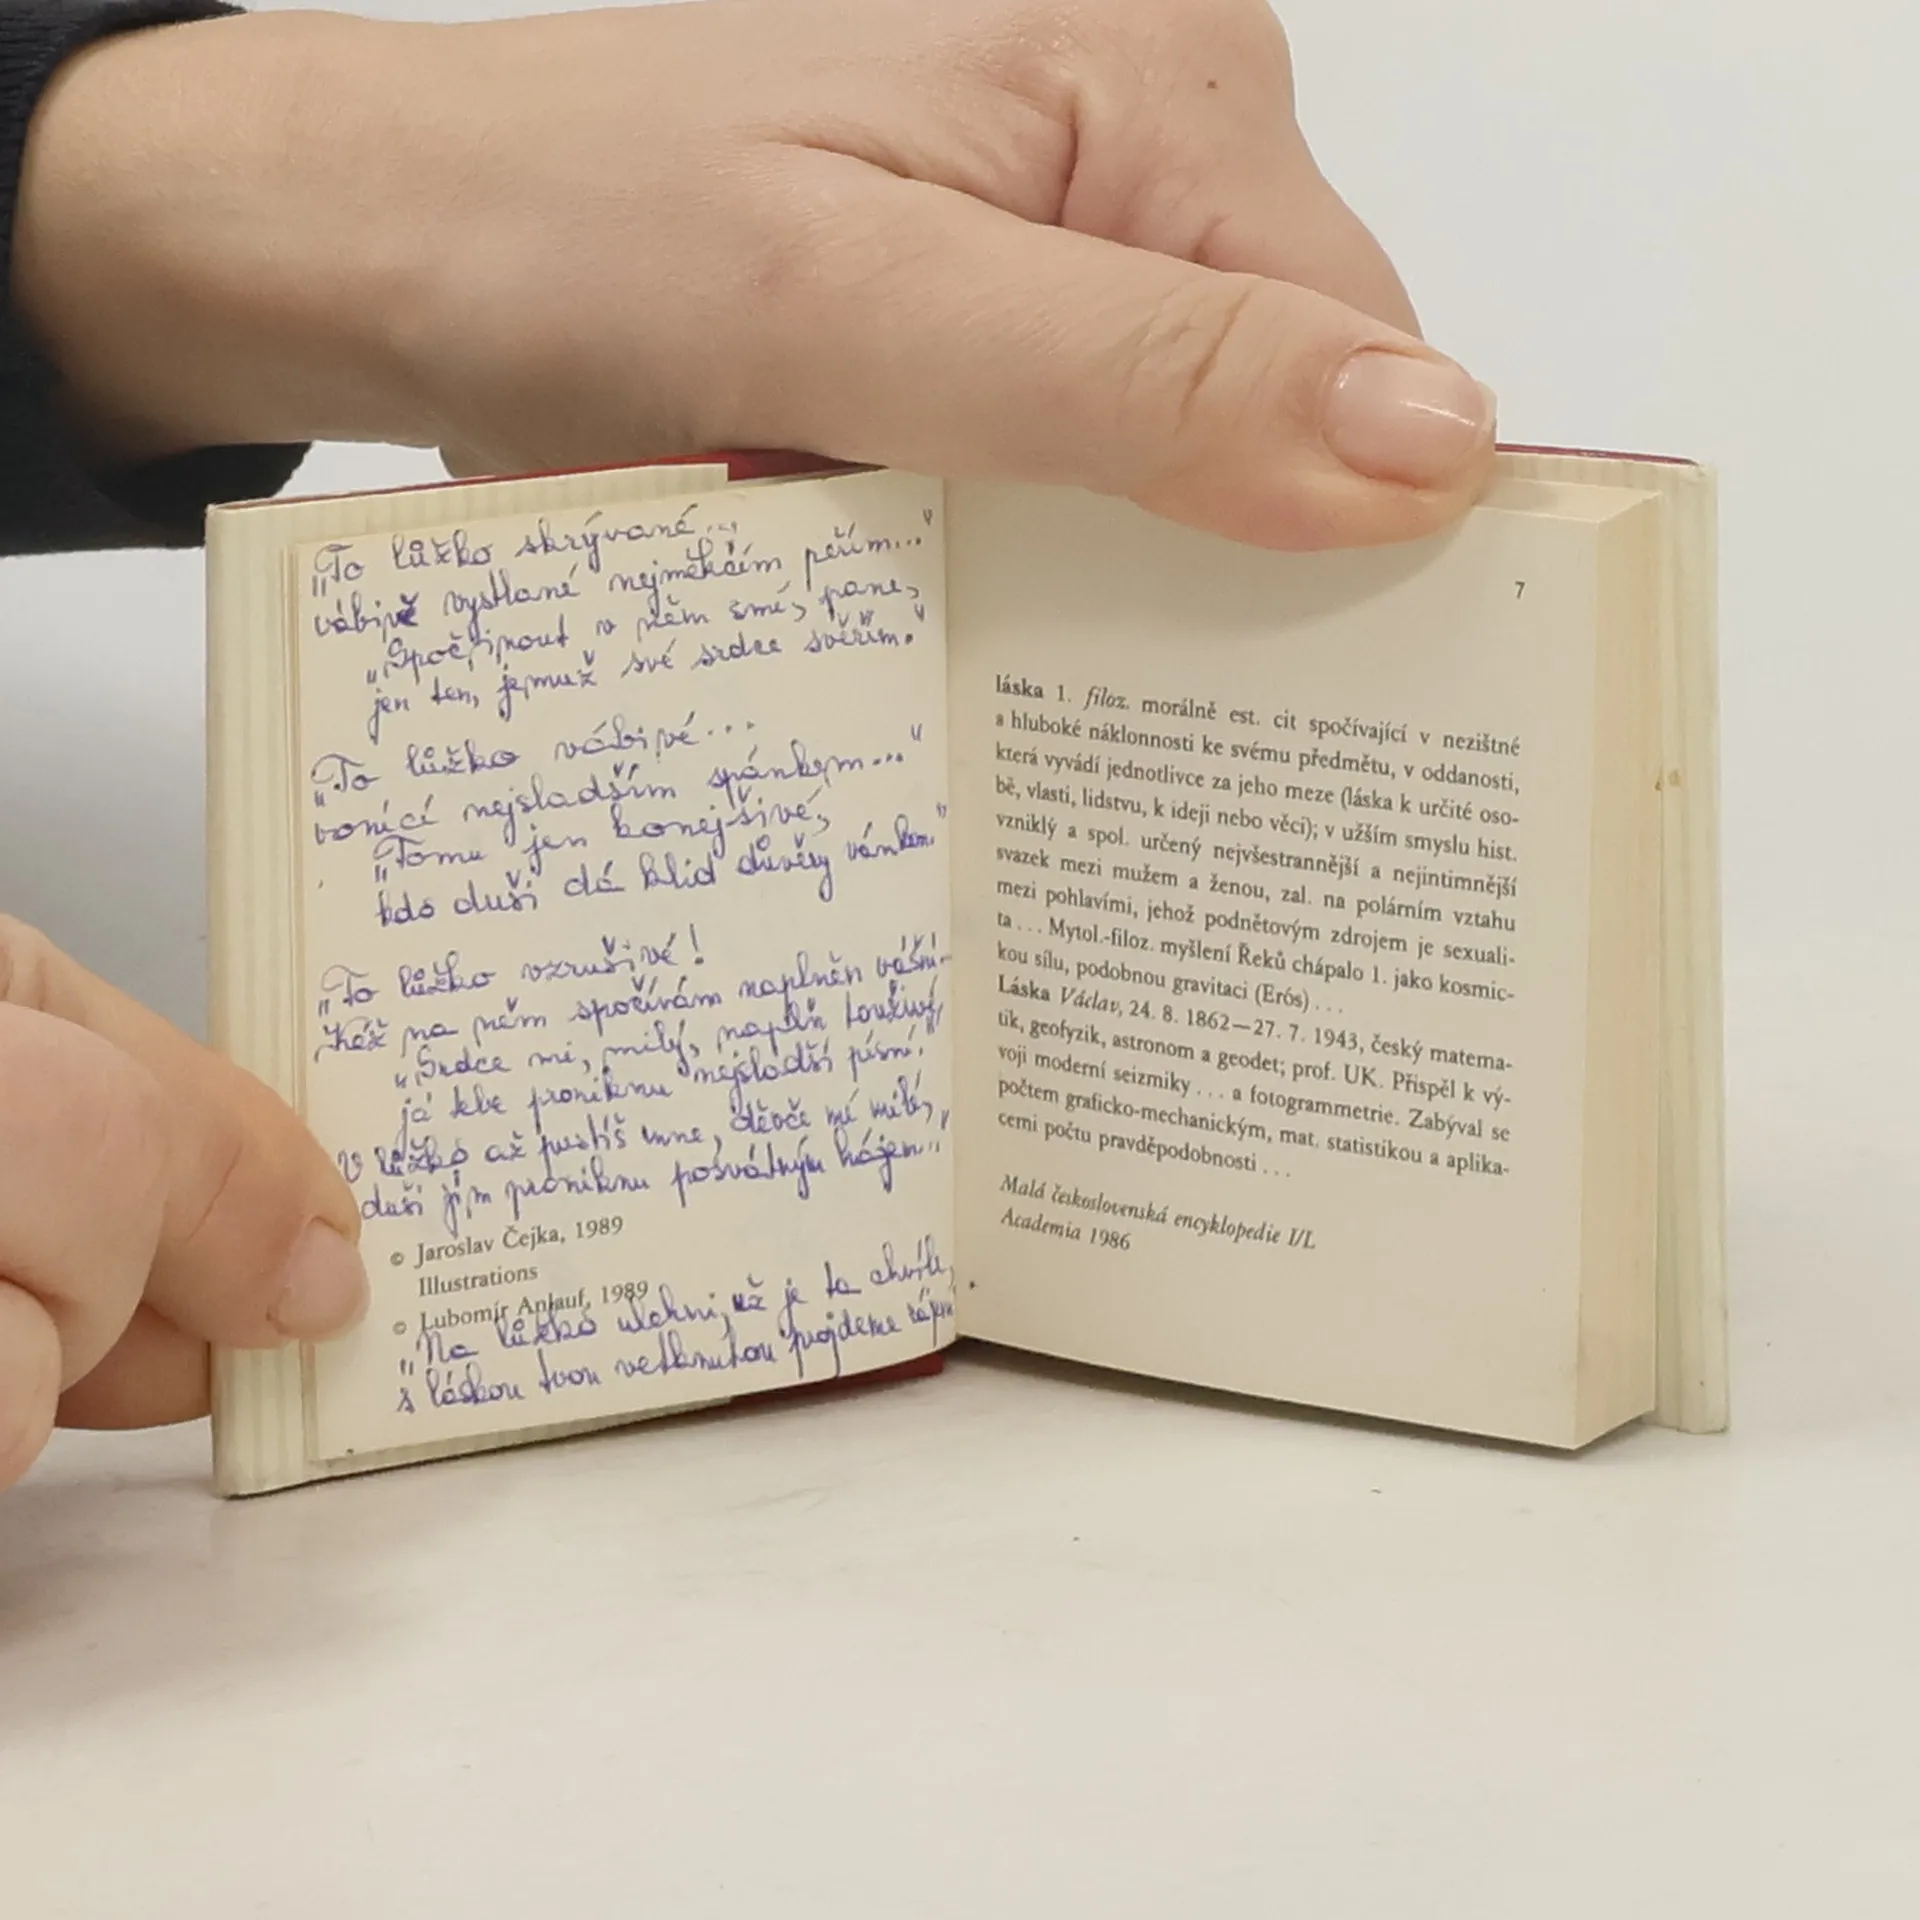 „To lůžko skrývané...
vábivě vystlané nejměkčím peřím..."
„Spočinout v něm smí, pane,
jen ten, jemuž své srdce svěřím."
„To lůžko vábivé...
vonící nejsladším spánkem..."
„Tomu jen konejšivé,
kdo duši dá klid důvěry vánkem."
„To lůžko vzrušivé!
Kéž na něm spočívám naplněn
„Srdce mi, milý, naplň touživé,
já tebe proniknu nejsladší písní."
V lůžko až pustíš mne, děvče mé milé,
duši jím proniknu posvátným hájem."
© Jaroslav Čejka, 1989
Illustrations
© Lubomír Anlauf, 1989
„Na lůžko ulehni, už je ta chvíle,
s láskou tvou vetknutou projdeme
7
láska 1. filoz. morálně est. cit spočívající v nezištné
a hluboké náklonnosti ke svému předmětu, v oddanosti,
která vyvádí jednotlivce za jeho meze (láska k určité oso-
bě, vlasti, lidstvu, k ideji nebo věci); v užším smyslu hist.
vzniklý a spol. určený nejvšestrannější a nejintimnější
svazek mezi mužem a ženou, zal. na polárním vztahu
mezi pohlavími, jehož podnětovým zdrojem je sexuali-
ta . . . Mytol.-filoz. myšlení Řeků chápalo l. jako kosmic-
kou sílu, podobnou gravitaci (Erós) . . .
Láska Václav, 24. 8. 1862—27. 7. 1943, český matema-
tik, geofyzik, astronom a geodet; prof. UK. Přispěl k vý-
voji moderní seizmiky . . . a fotogrammetrie. Zabýval se
počtem graficko-mechanickým, mat. statistikou a aplika-
cemi počtu pravděpodobnosti . . .
Malá československá encyklopedie I/L
Academia 1986